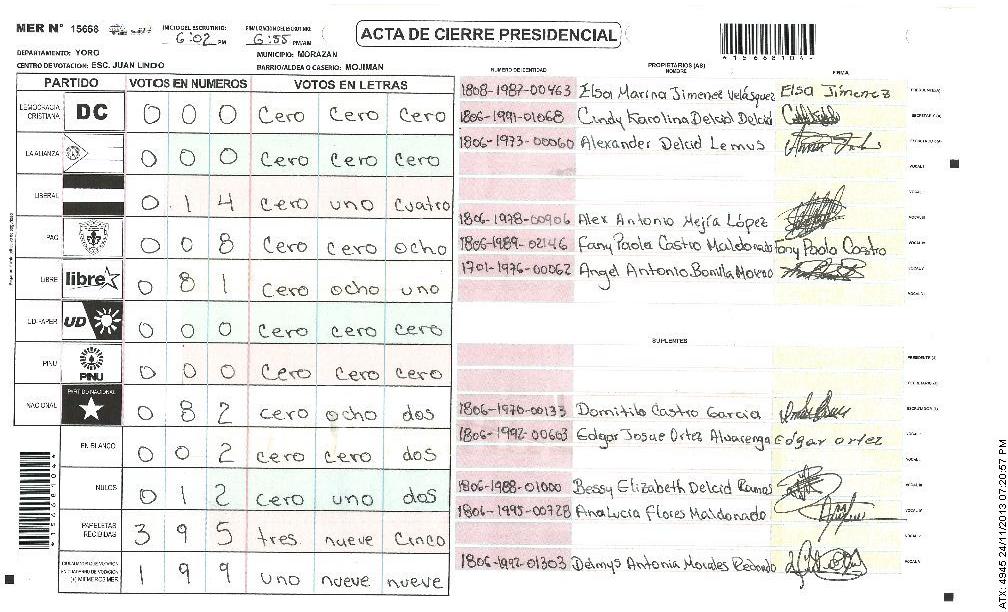 MER N° 15658
INICIO DEL ESCRUTINIO:
6:02 PM
FINALIZACION DEL ESCRUTINIO:
6:55 PM/AM
ACTA DE CIERRE PRESIDENCIAL
DEPARTAMENTO: YORO
MUNICIPIO: MORAZAN
CENTRO DE VOTACION: ESC. JUAN LINDO
BARRIO/ALDEA O CASERIO: MOJIMAN
*15668104*
PARTIDO VOTOS EN NUMEROS VOTOS EN LETRAS
DEMOCRACIA CRISTIANA DC 0 0 0 Cero Cero Cero
LA ALIANZA 0 0 0 Cero Cero Cero
LIBERAL 0 1 4 Cero uno cuatro
PAC 0 0 8 Cero Cero ocho
LIBRE libre 0 8 1 Cero ocho uno
UD FAPER UD 0 0 0 Cero Cero Cero
PINU PINU 0 0 0 Cero Cero Cero
NACIONAL PARTIDO NACIONAL 0 8 2 cero ocho dos
EN BLANCO 0 0 2 cero cero dos
NULOS 0 1 2 cero uno dos
PAPELETAS RECIBIDAS 3 9 5 tres nueve Cinco
1 9 9 uno nueve nueve
NUMERO DE IDENTIDAD PROPIETARIOS (AS) NOMBRE FIRMA
1808-1987-00463 Elsa Marina Jimenez Velásquez Elsa Jimenez PRESIDENTE(A)
1806-1991-01068 Cindy Karolina Delcid Delcid SECRETARIO(A)
1806-1973-00060 Alexander Delcid Lemus ESCRUTADOR(A)
VOCAL I
VOCAL II
1806-1978-00906 Alex Antonio Mejía López VOCAL III
1806-1989-02146 Fany Paola Castro Maldonado Fany Paola Castro VOCAL IV
1701-1976-00062 Angel Antonio Bonilla Moreno VOCAL V
VOCAL VI
SUPLENTES
PRESIDENTE(A)
SECRETARIO(A)
1806-1970-00133 Domitilo Castro Garcia ESCRUTADOR(A)
1806-1992-00603 Edgar Josue Ortez Alvarenga Edgar ortez VOCAL I
VOCAL II
1806-1988-01000 Bessy Elizabeth Delcid Ramos VOCAL III
1806-1995-00728 Ana Lucia Flores Maldonado VOCAL IV
VOCAL V
1806-1992-01303 Delmys Antonia Morales Redondo VOCAL VI
ATX: 4945 24/11/2013 07:20:57 PM